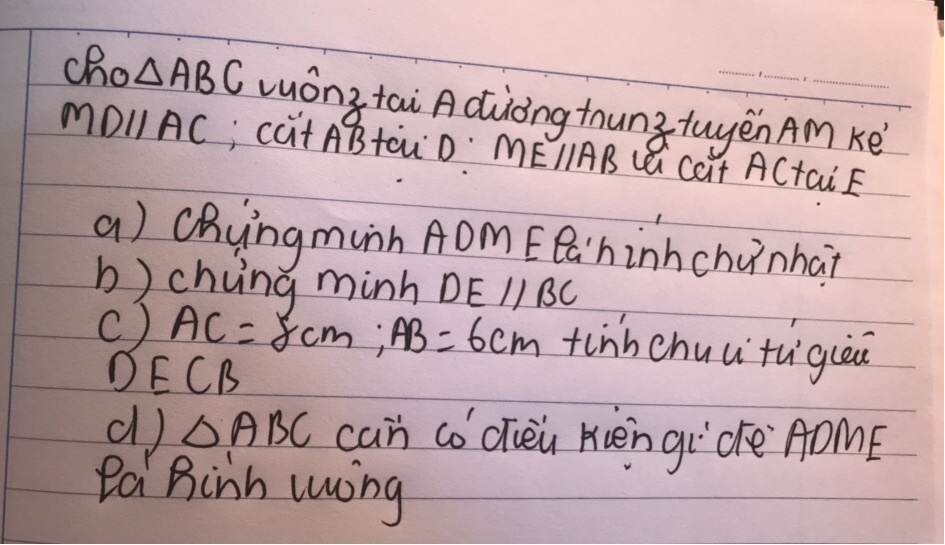 Cho △ABC vuông tại A đường trung tuyến AM kẻ
MD//AC ; cắt AB tại D ; ME//AB và cắt AC tại E
a) Chứng minh ADME là hình chữ nhật
b) chứng minh DE // BC
c) AC = 8cm ; AB = 6cm tính chu vi tứ giác
DECB
d) △ABC cần có điều kiện gì để ADME
là hình vuông